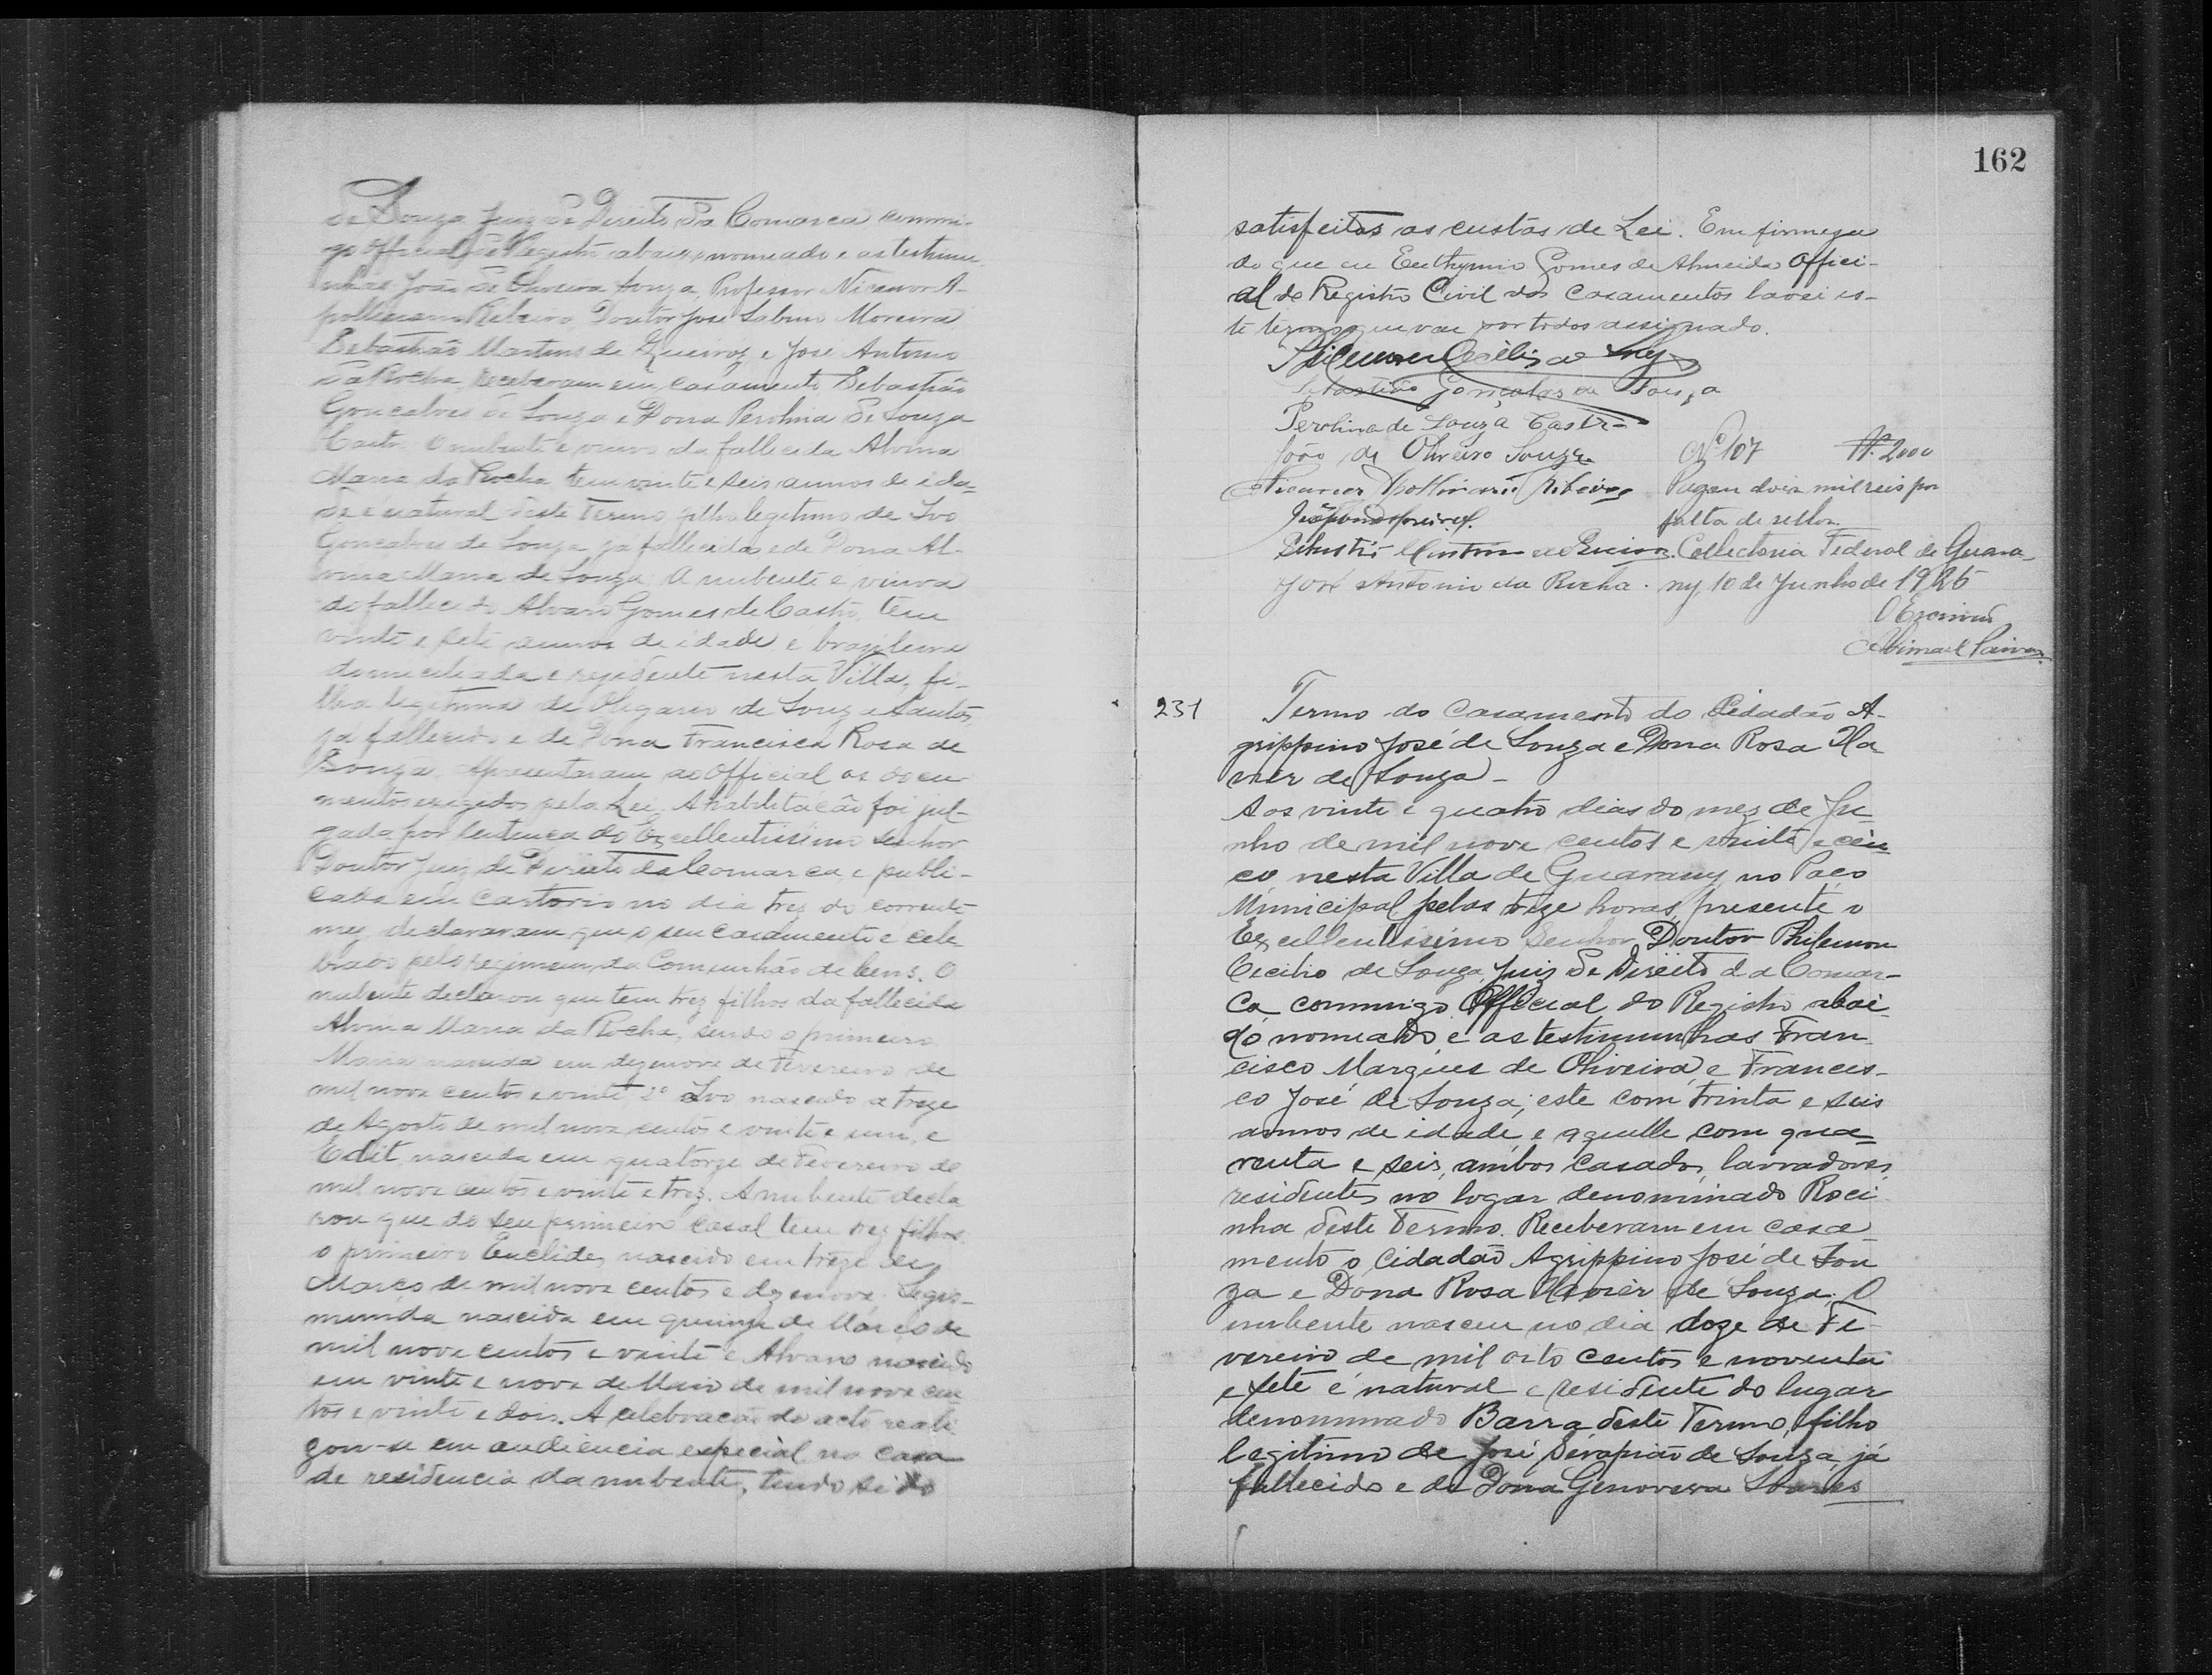 de Souza Juiz de Direito da Comarca commi-
go Official do Registro abaixo nomeado e as testimu
nhas João de Oliveira Souza, Professor Nicanor A-
pollinario Ribeiro, Doutor José Sabino Moreira
Sebastião Martins de Queiroz e José Antonio
da Rocha, receberam em casamento Sebastião
Gonçalves de Souza e Dona Perolina de Souza
Castro. O nubente e viuvo da fallecida Alvina
Maria da Rocha, tem vinte e seis annos de ida-
de é natural deste Termo filho legitimo de Ivo
Gonçalves de Souza já fallecido e de Dona Al-
vina Maria de Souza. A nubente e viuva
do fallecido Alvaro Gomes de Castro, tem
vinte e sete annos de idade, e brazileira
domiciliada e residente nesta Villa, fi-
lha legitima de Olegario de Souz e Santos
já fallecido e de Dona Francisca Rosa de
Souza. Apresentaram ao Official os docu
mentos exigidos pela Lei. A habilitação foi jul-
gada por sentença do Excellentissimo Senhor
Doutor Juiz de Direito da Comarca, e publi-
cada em Cartorio no dia trez do corrente
mez, declararam que o seu casamento é cele
brado pelo regimem da Comunhão de bens. O
nubente declarou que tem trez filhos da fallecida
Alvina Maria da Rocha, sendo o primeiro
Maria nascida em dezenove de Fevereiro de
mil nove centos e vinte, 2º Ivo nascido a treze
de Agosto de mil nove centos e vinte e um, e
Edit, nascida em quatorze de Fevereiro de
mil nove centos e vinte e trez. A nubente decla
rou que do seu primeiro casal tem trez filhos.
o primeiro Euclides nascido em treze de
Março de mil nove centos e dezenove, Segis-
munda nascida em quinze de Março de
mil nove centos e vinte e Alvaro nascido
em vinte e nove de Maio de mil nove cen
tos e vinte e dois. A celebração do acto reali
zou-se em audiencia especial na casa
de residencia da nubente, tendo sido
162
satisfeitas as custas de Lei. Em firmeza
do que eu Euthymio Gomes de Almeida Offici-
al do Registro Civil dos Casamentos lavrei es-
te termo que vae por todos assignado.
Philemon Cecilio de Souza
Sebastião Gonçalves de Souza
Perolina de Souza Castro
João de Oliveira Souza
Nicanor Apollinario Ribeiro
Sebastião Martins de Queiroz
José Antonio da Rocha.
Nº 107 2000
Pagou dois mil reis por
falta de sellos.
Collectoria Federal de Guara-
ny, 10 de Junho de 1925
O Escrivão
Abimael Paiva
231
Termo do Casamento do Cidadão A-
grippino José de Souza e Dona Rosa Xa
vier de Souza -
Aos vinte e quatro dias do mez de Ju
nho de mil nove centos e vinte e cin
co, nesta Villa de Guarany, no Paço
Municipal, pelas treze horas, presente o
Excellentissimo Senhor Doutor Philemon
Cecilio de Souza, Juiz de Direito da Comar-
ca, commigo Official do Registro abai
xo nomeado e as testimunhas Fran-
cisco Marques de Oliveira e Francis-
co José de Souza; este com trinta e seis
annos de idade, e aquelle com qua-
renta e seis, ambos casados, lavradores,
residentes no logar denominado Roci
nha deste Termo. Receberam em casa
mento o Cidadão Agrippino José de Sou
za e Dona Rosa Xavier de Souza. O
nubente nasceu no dia doze de Fe-
vereiro de mil oito centos e noventa
e sete é natural e residente do lugar
denominado Barra deste Termo, filho
legitimo de José Serapião de Souza, já
fallecido e de Dona Genoveva Soares